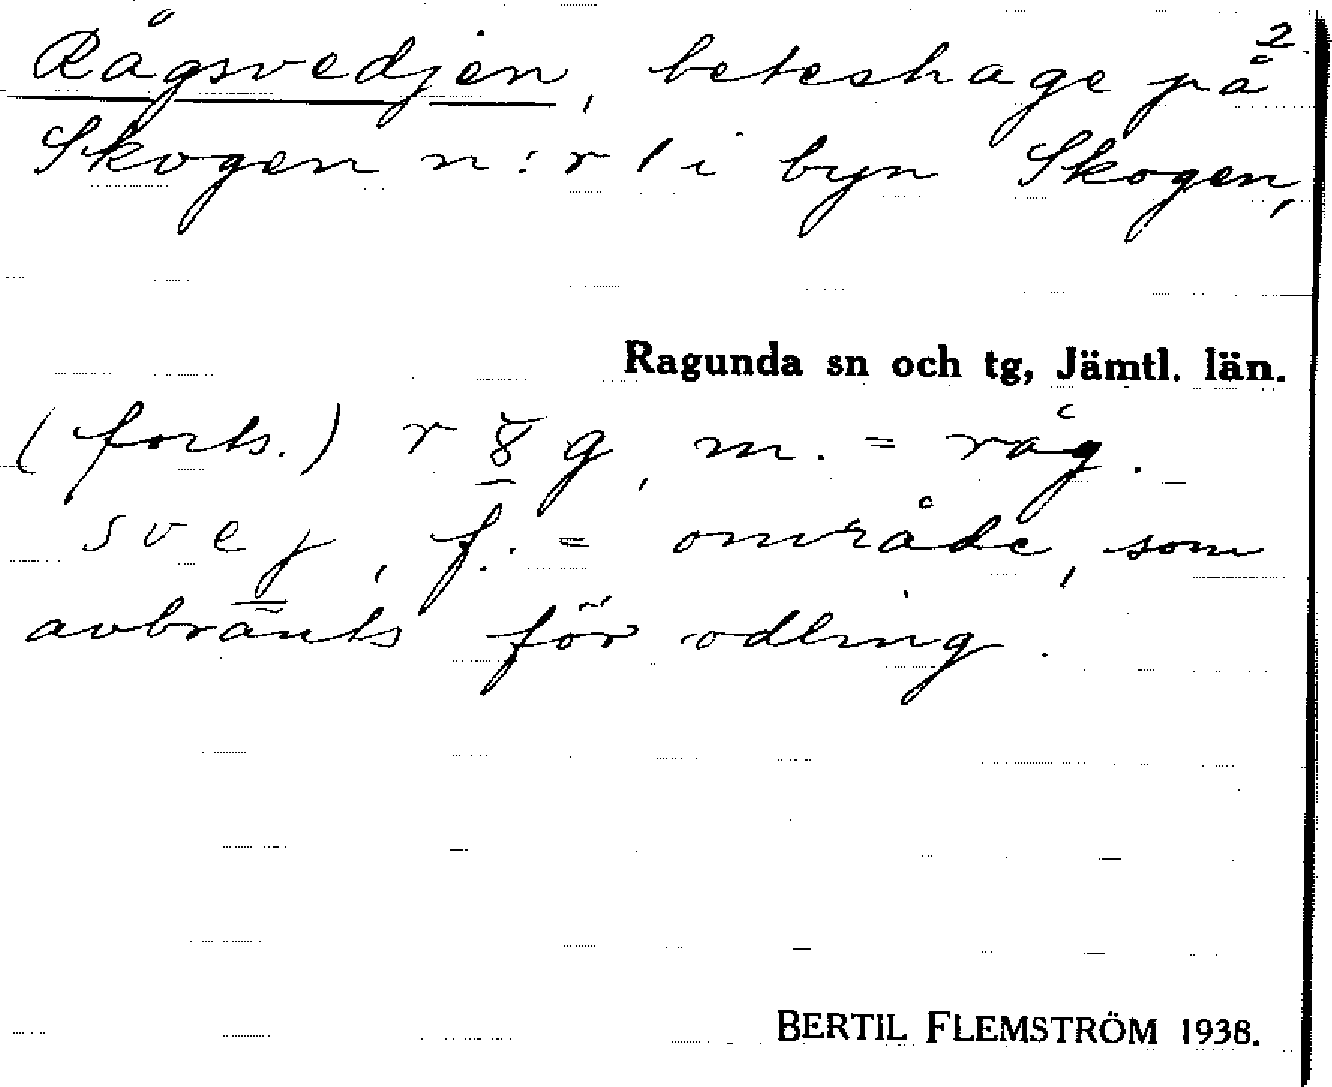 2
Rågsvedjen, beteshage på
Skogen n:r 1 i byn Skogen,
Ragunda sn och tg, Jämtl. län.
(forts.) r g, m. = råg.
svej, f. = område, som
avbränts för odling.
BERTIL FLEMSTRÖM 1938.